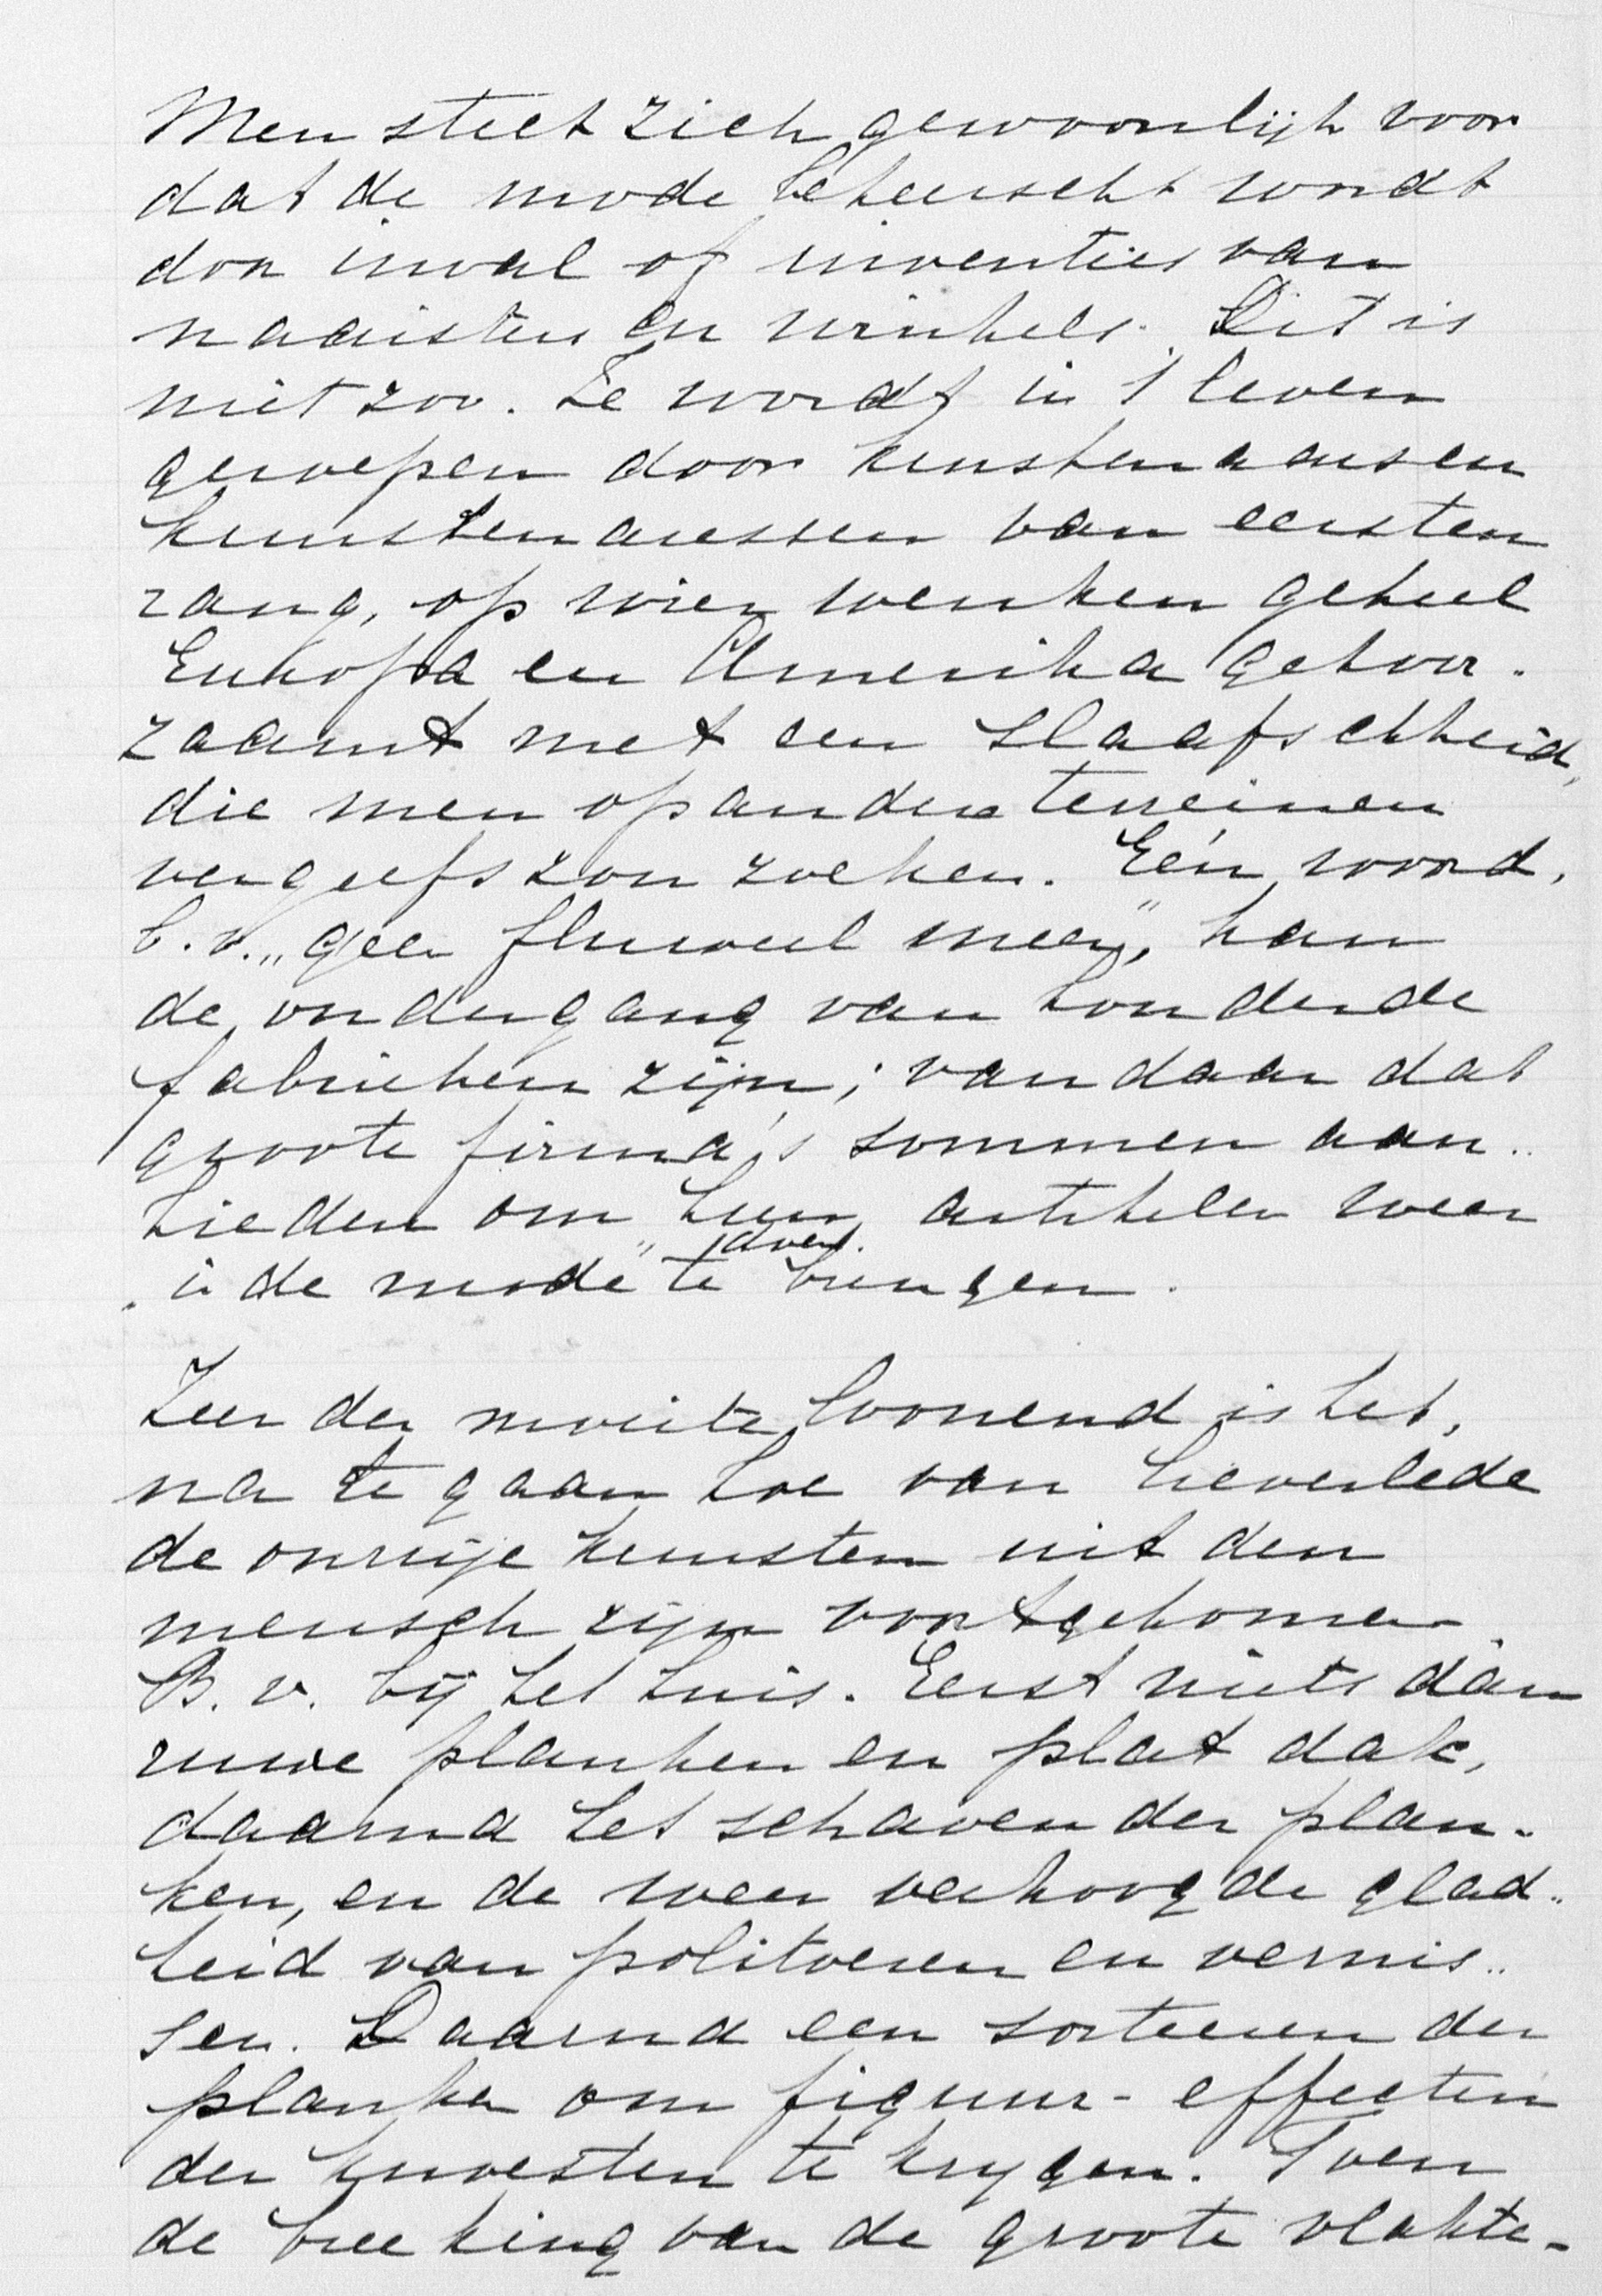 Men stelt zich gewoonlijk voor
dat de mode beheerscht wordt
door inval of inventies van
naaisters en winkels. Dit is
niet zoo. Ze wordt in 't leven
geroepen door kunstenaars en
kunstenaressen van eersten
rang, op wier wenken geheel
Europa en Amerika gehoor-
zaamt met een slaafschheid,
die men op andere terreinen
vergeefs zou zoeken. Eén woord,
b.v. „geen fluweel meer", kan
de ondergang van honderde
fabrieken zijn; vandaar dat
groote firma's sommen aan-
bieden om hun artikelen weer
„in de mode" te doen
brengen.
Zeer der moeite loonend is het,
na te gaan hoe van lieverlede
de onvrije kunsten uit den
mensch zijn voortgekomen.
B.v. bij het huis. Eerst niets dan
ruwe planken en plat dak,
daarna het schaven der plan-
ken, en de weer verhoogde glad-
heid van politoeren en vernis-
sen. Daarna een sorteeren der
planken om figuur-effecten
der kwesten te krygen. Toen
de breeking van de groote vlakte-